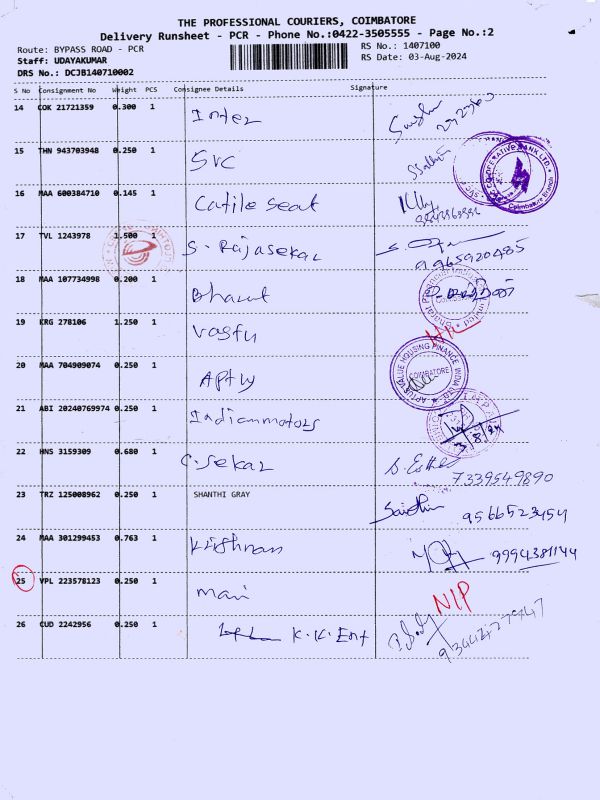 THE PROFESSIONAL COURIERS, COIMBATORE
Delivery Runsheet - PCR - Phone No.:0422-3505555 - Page No.:2
Route: BYPASS ROAD - PCR
RS No.: 1407100
Staff: UDAYAKUMAR
RS Date: 03-Aug-2024
DRS No.: DCJB140710002
S No Consignment No Weight PCS Consignee Details Signature
14 COK 21721359 0.300 1 Inter
15 THN 943703948 0.250 1 SVC
CO-OPERATIVE BANK LTD. Coimbatore Branch
16 MAA 600384710 0.145 1 Catile Seat
17 TVL 1243978 1.500 1 S. Rajasekar
9965920485
18 MAA 107734998 0.200 1 Bharat
Bharat Financial
19 KRG 278106 1.250 1 Vastu
20 MAA 704909074 0.250 1 Aptly
APTUS VALUE HOUSING FINANCE INDIA LTD. COIMBATORE
21 ABI 20240769974 0.250 1 Indianmotors
3/8/24
22 HNS 3159309 0.680 1 C. Sekar
7339549890
23 TRZ 125008962 0.250 1 SHANTHI GRAY
9566523454
24 MAA 301299453 0.763 1 Krishnan
9994381144
25 VPL 223578123 0.250 1 Mani NIP
26 CUD 2242956 0.250 1 K.K. Ent